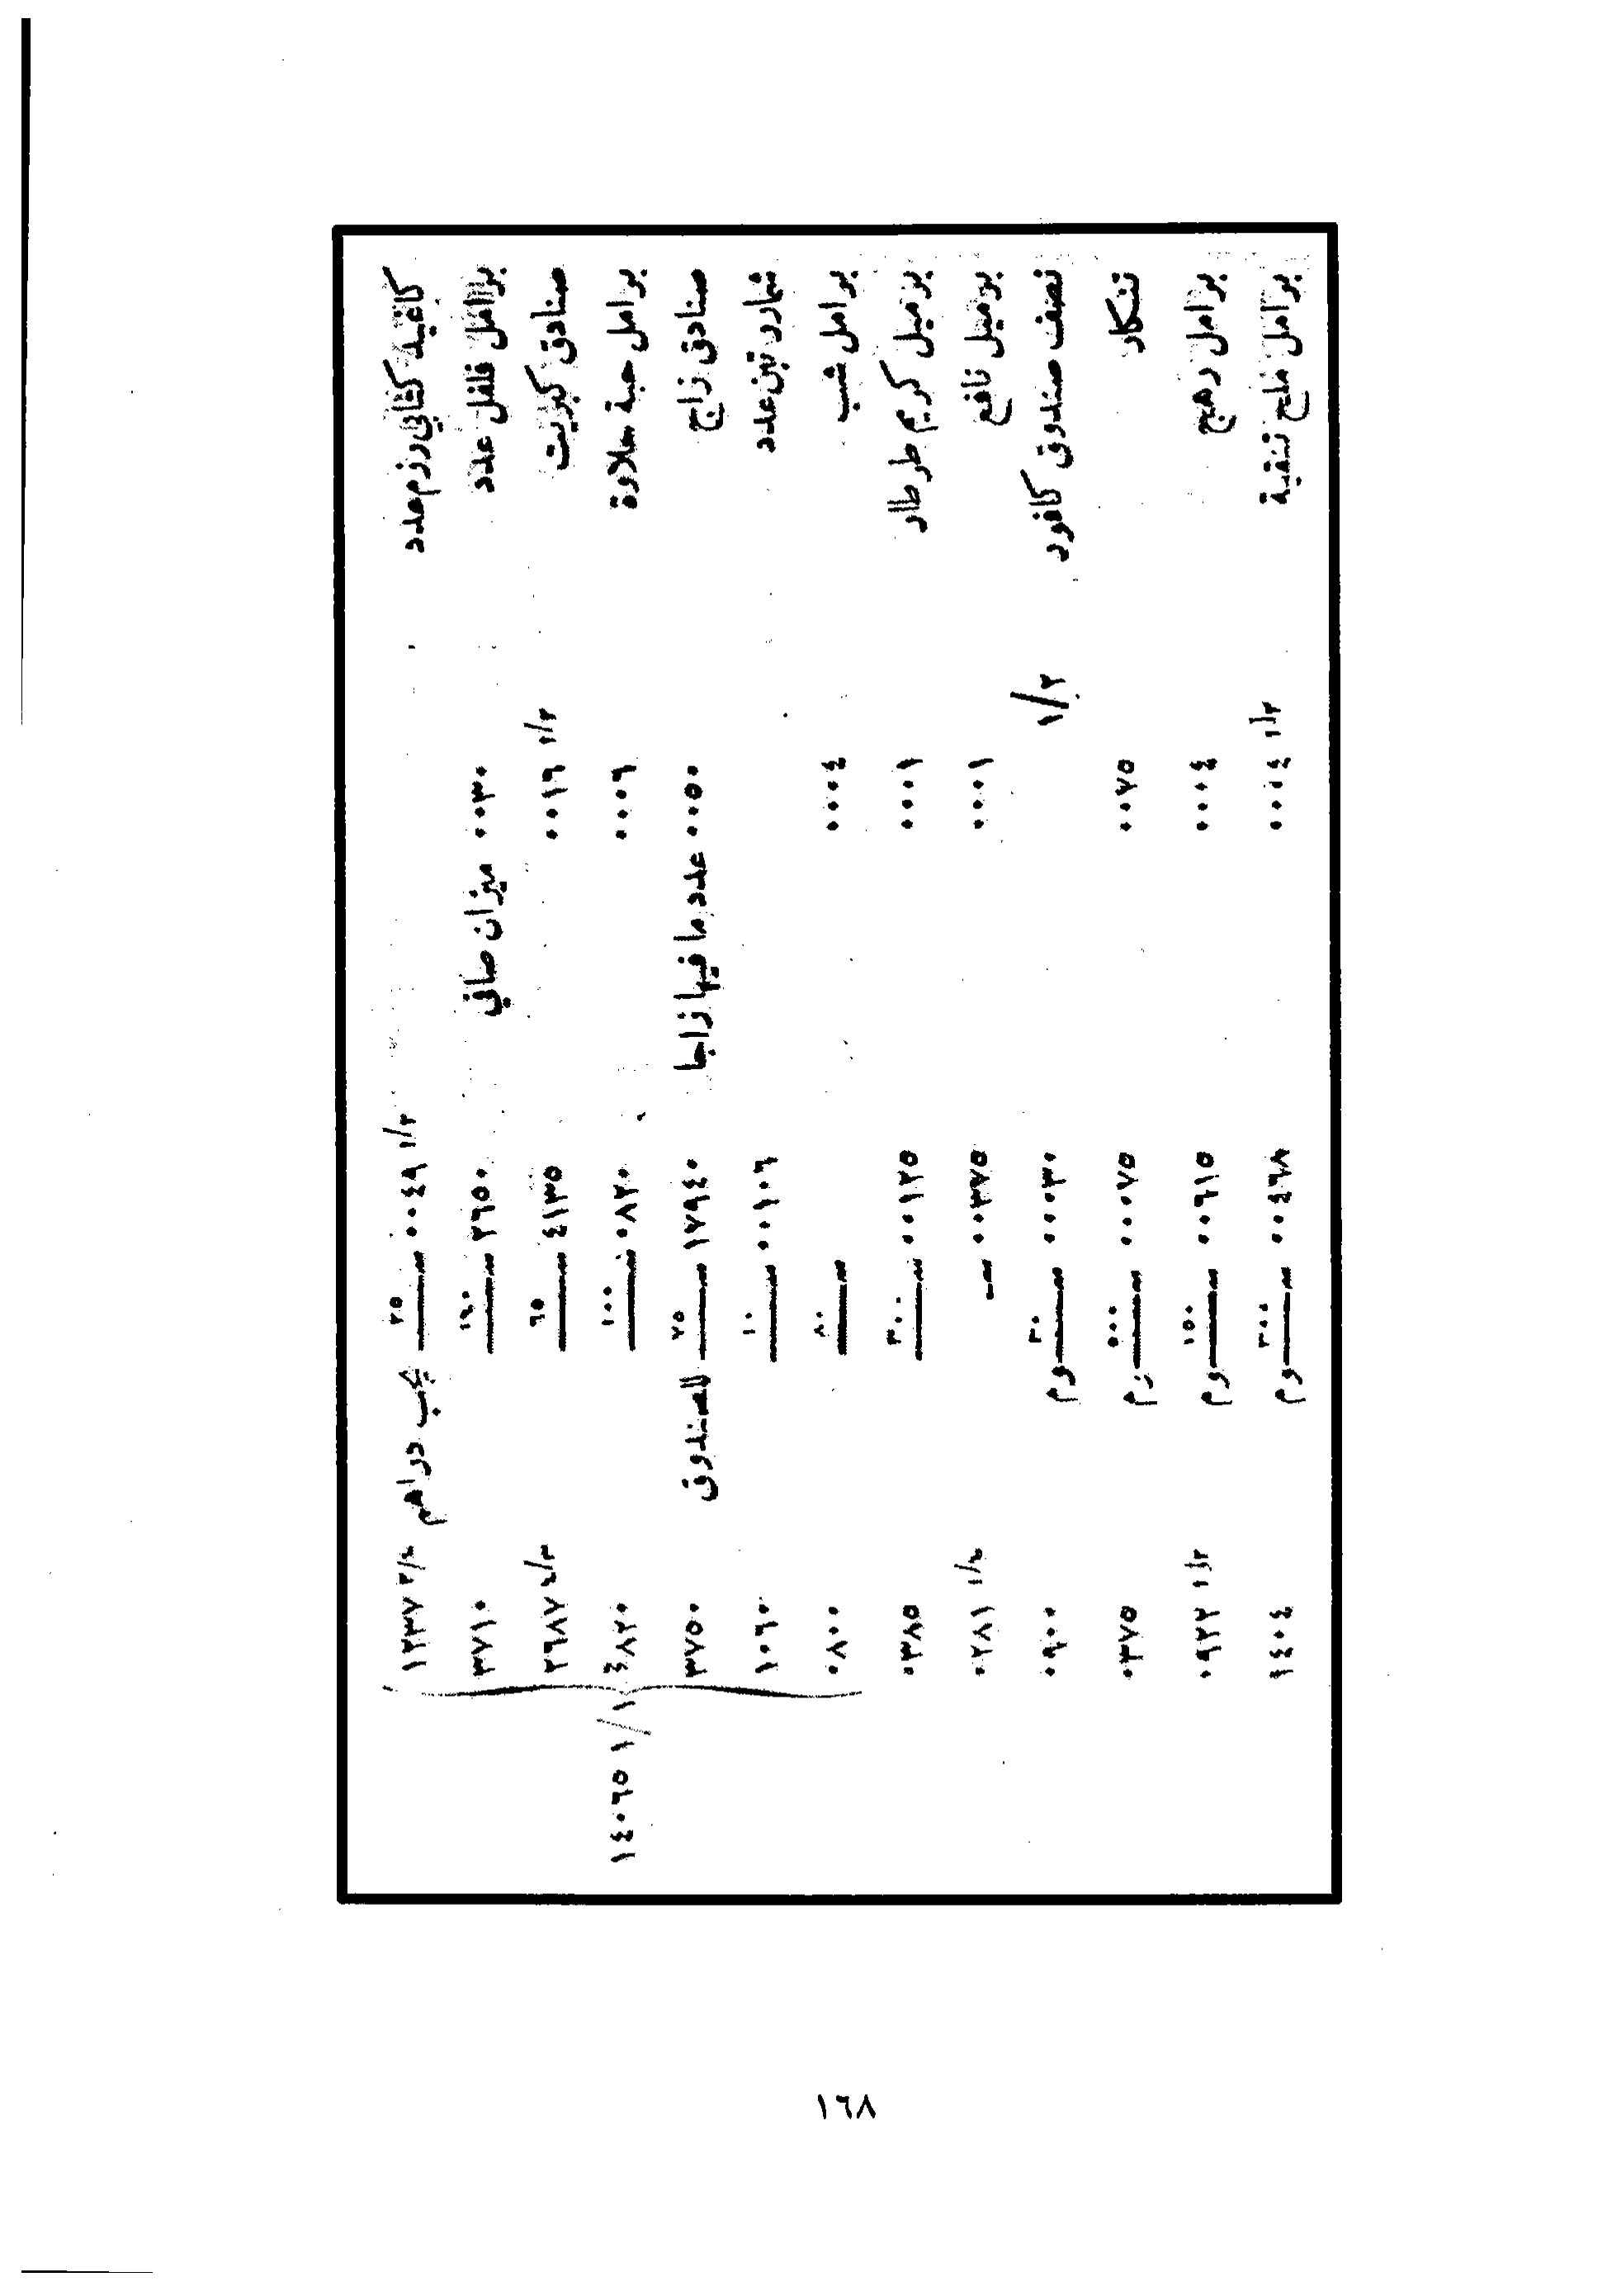 كاغيد كتابي رزم عدد ٠٠٤٩ ١/٢ ســـ ٢٥ يجب دراهم ١٢٣٧ ٢/٤
برامل فلفل عدد ٠٠٣٠ ميزان صافي ٢٦٥٠ ســـ ١٤٠ ٣٧١٠
صنادق كبريت ٠٠١٦ ١/٢ ٤١٣٥ ســـ ٦٥ ٢٦٨٧ ٣/٤
برامل حبة حلاوة ٠٠٠٦ ٠٨٢٠ ســـ ١٠٠ ٤٨٢٠ ١٤٠٦٥ ١/١
صنادق زاج ٠٠٥٠ عدد ما فيها زاجا ١٧٩٤٠ ســـ ٧٥ للصندوق ٣٧٥٠
شمارر تين عدد ٠٠١٠٦ ســـ ١٠ ١٠٦٠
برامل شب ٠٠٠٤ ســـ ٨٠٠ ٠٨٠٠
برميل كريم طرطار ٠٠٠١ ٠٠١٢٥ ســـ ٣٠٠ ٠٣٨٥
برميل نافع ٠٠٠١ ٠٠٣٧٥ ســـ ٠٢٨١ ١/٤
نصف صندوق كافور ١/٢ ٠٠٠٣٠ ســـوم ٣٠ ٠٩٠٠
تنكار ٠٠٧٥ ٠٠٠٧٥ ســـزم ٥٠٠ ٠٣٧٥
برامل رهج ٠٠٠٤ ٠٠٦١٥ ســـوم ١٥٠ ٠٩٢٢ ١/٢
برامل ملح تنقية ٠٠٠٤ ١/٢ ٠٠٤٦٨ ســـوم ٣٠٠ ١٤٠٤
١٦٨